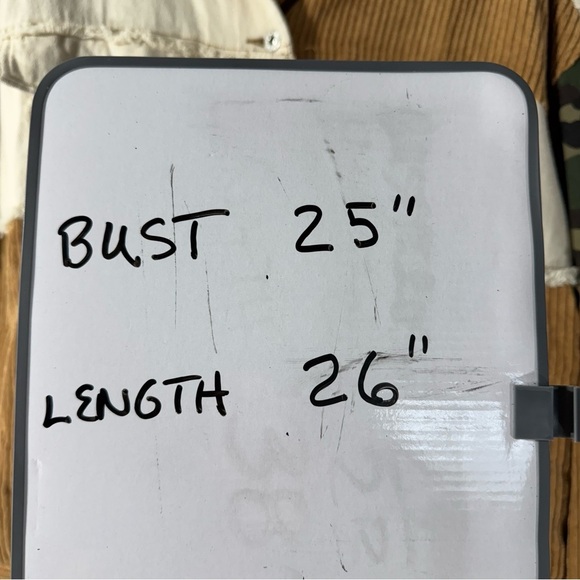 BUST 25"
LENGTH 26"